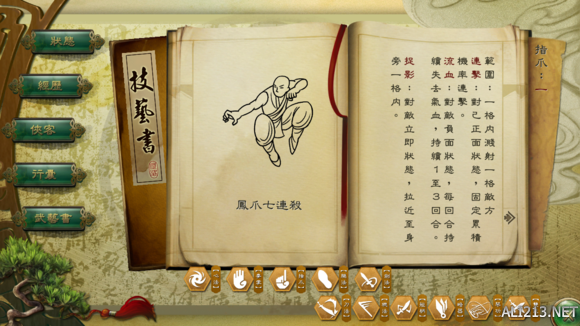 狀態
經歷
俠客
行囊
武藝書
技藝書
鳳爪七連殺
指爪：一
範圍：一格內濺射一格敵方
連擊：對己正面狀態，固定累積
機率連擊。
流血：對敵負面狀態，每回合持
續失去氣血，持續1至3回合。
捉影：對敵立即狀態，拉近至身
旁一格內。
ALI213.NET